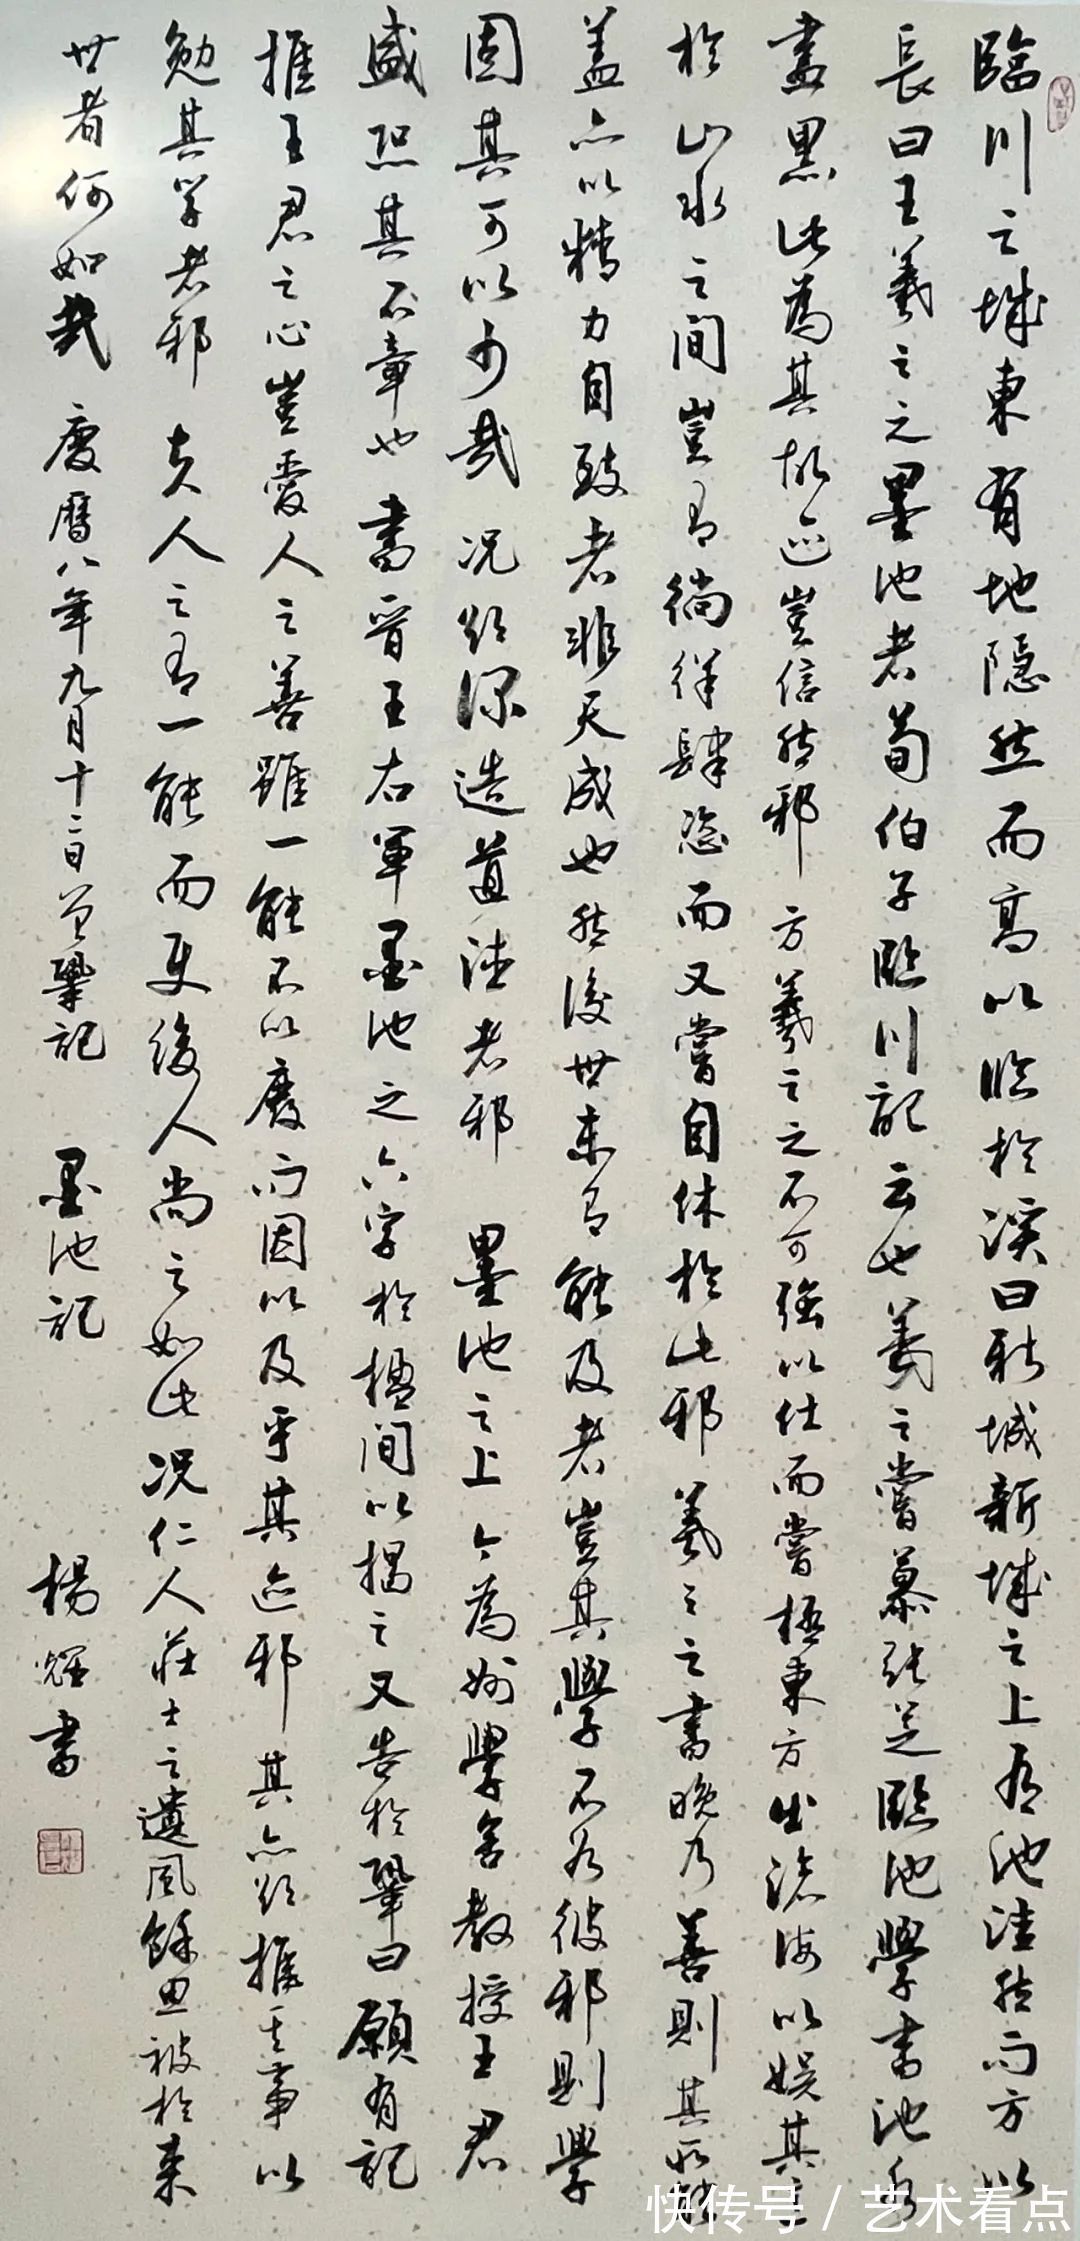 臨川之城東有地隐然而高以臨於溪曰新城新城之上有池洼然而方以
長曰王羲之之墨池者荀伯子臨川記云也羲之嘗慕張芝臨池學書池水
盡黑此為其故迹豈信然邪 方羲之之不可強以仕而嘗極東方出滄海以娛其意
於山水之間豈有徜徉肆恣而又嘗自休於此邪 羲之之書晚乃善則其所能
盖亦以精力自致者非天成也然後世未有能及者豈其學不如彼邪則學
固其可以少哉 况欲深造道德者邪 墨池之上今為州學舍教授王君
盛恐其不章也 書晉王右軍墨池之六字於楹間以揭之又告於鞏曰願有記
推王君之心豈愛人之善雖一能不以廢而因以及乎其迹邪 其亦欲推其事以
勉其學者邪 夫人之有一能而使後人尚之如此况仁人莊士之遺風餘思被於來
世者何如哉 慶曆八年九月十二日曾鞏記 墨池記 楊 書
快传号 / 艺术看点